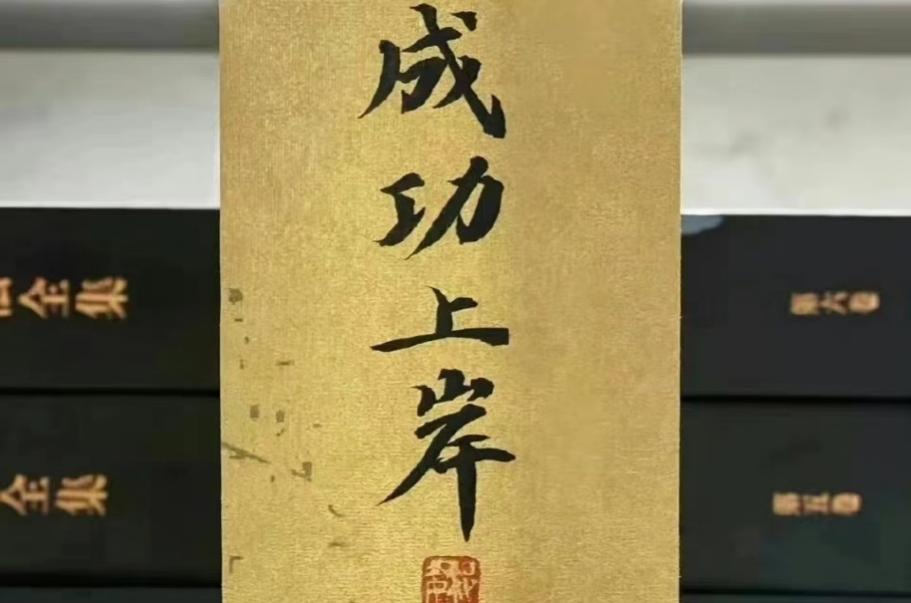 成功上岸
全集
第六卷
全集
第五卷